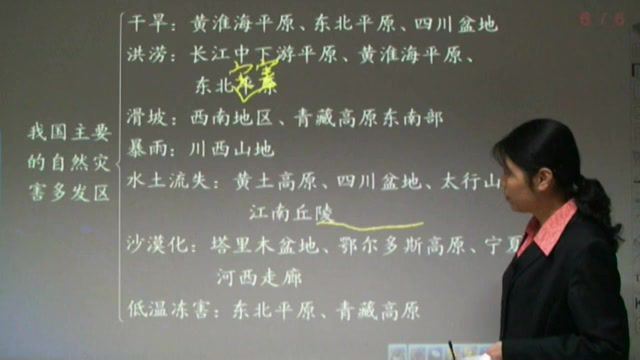 6/6
干旱：黄淮海平原、东北平原、四川盆地
洪涝：长江中下游平原、黄淮海平原、
东北平原
滑坡：西南地区、青藏高原东南部
暴雨：川西山地
我国主要
的自然灾
害多发区
水土流失：黄土高原、四川盆地、太行山
江南丘陵
沙漠化：塔里木盆地、鄂尔多斯高原、宁夏
河西走廊
低温冻害：东北平原、青藏高原